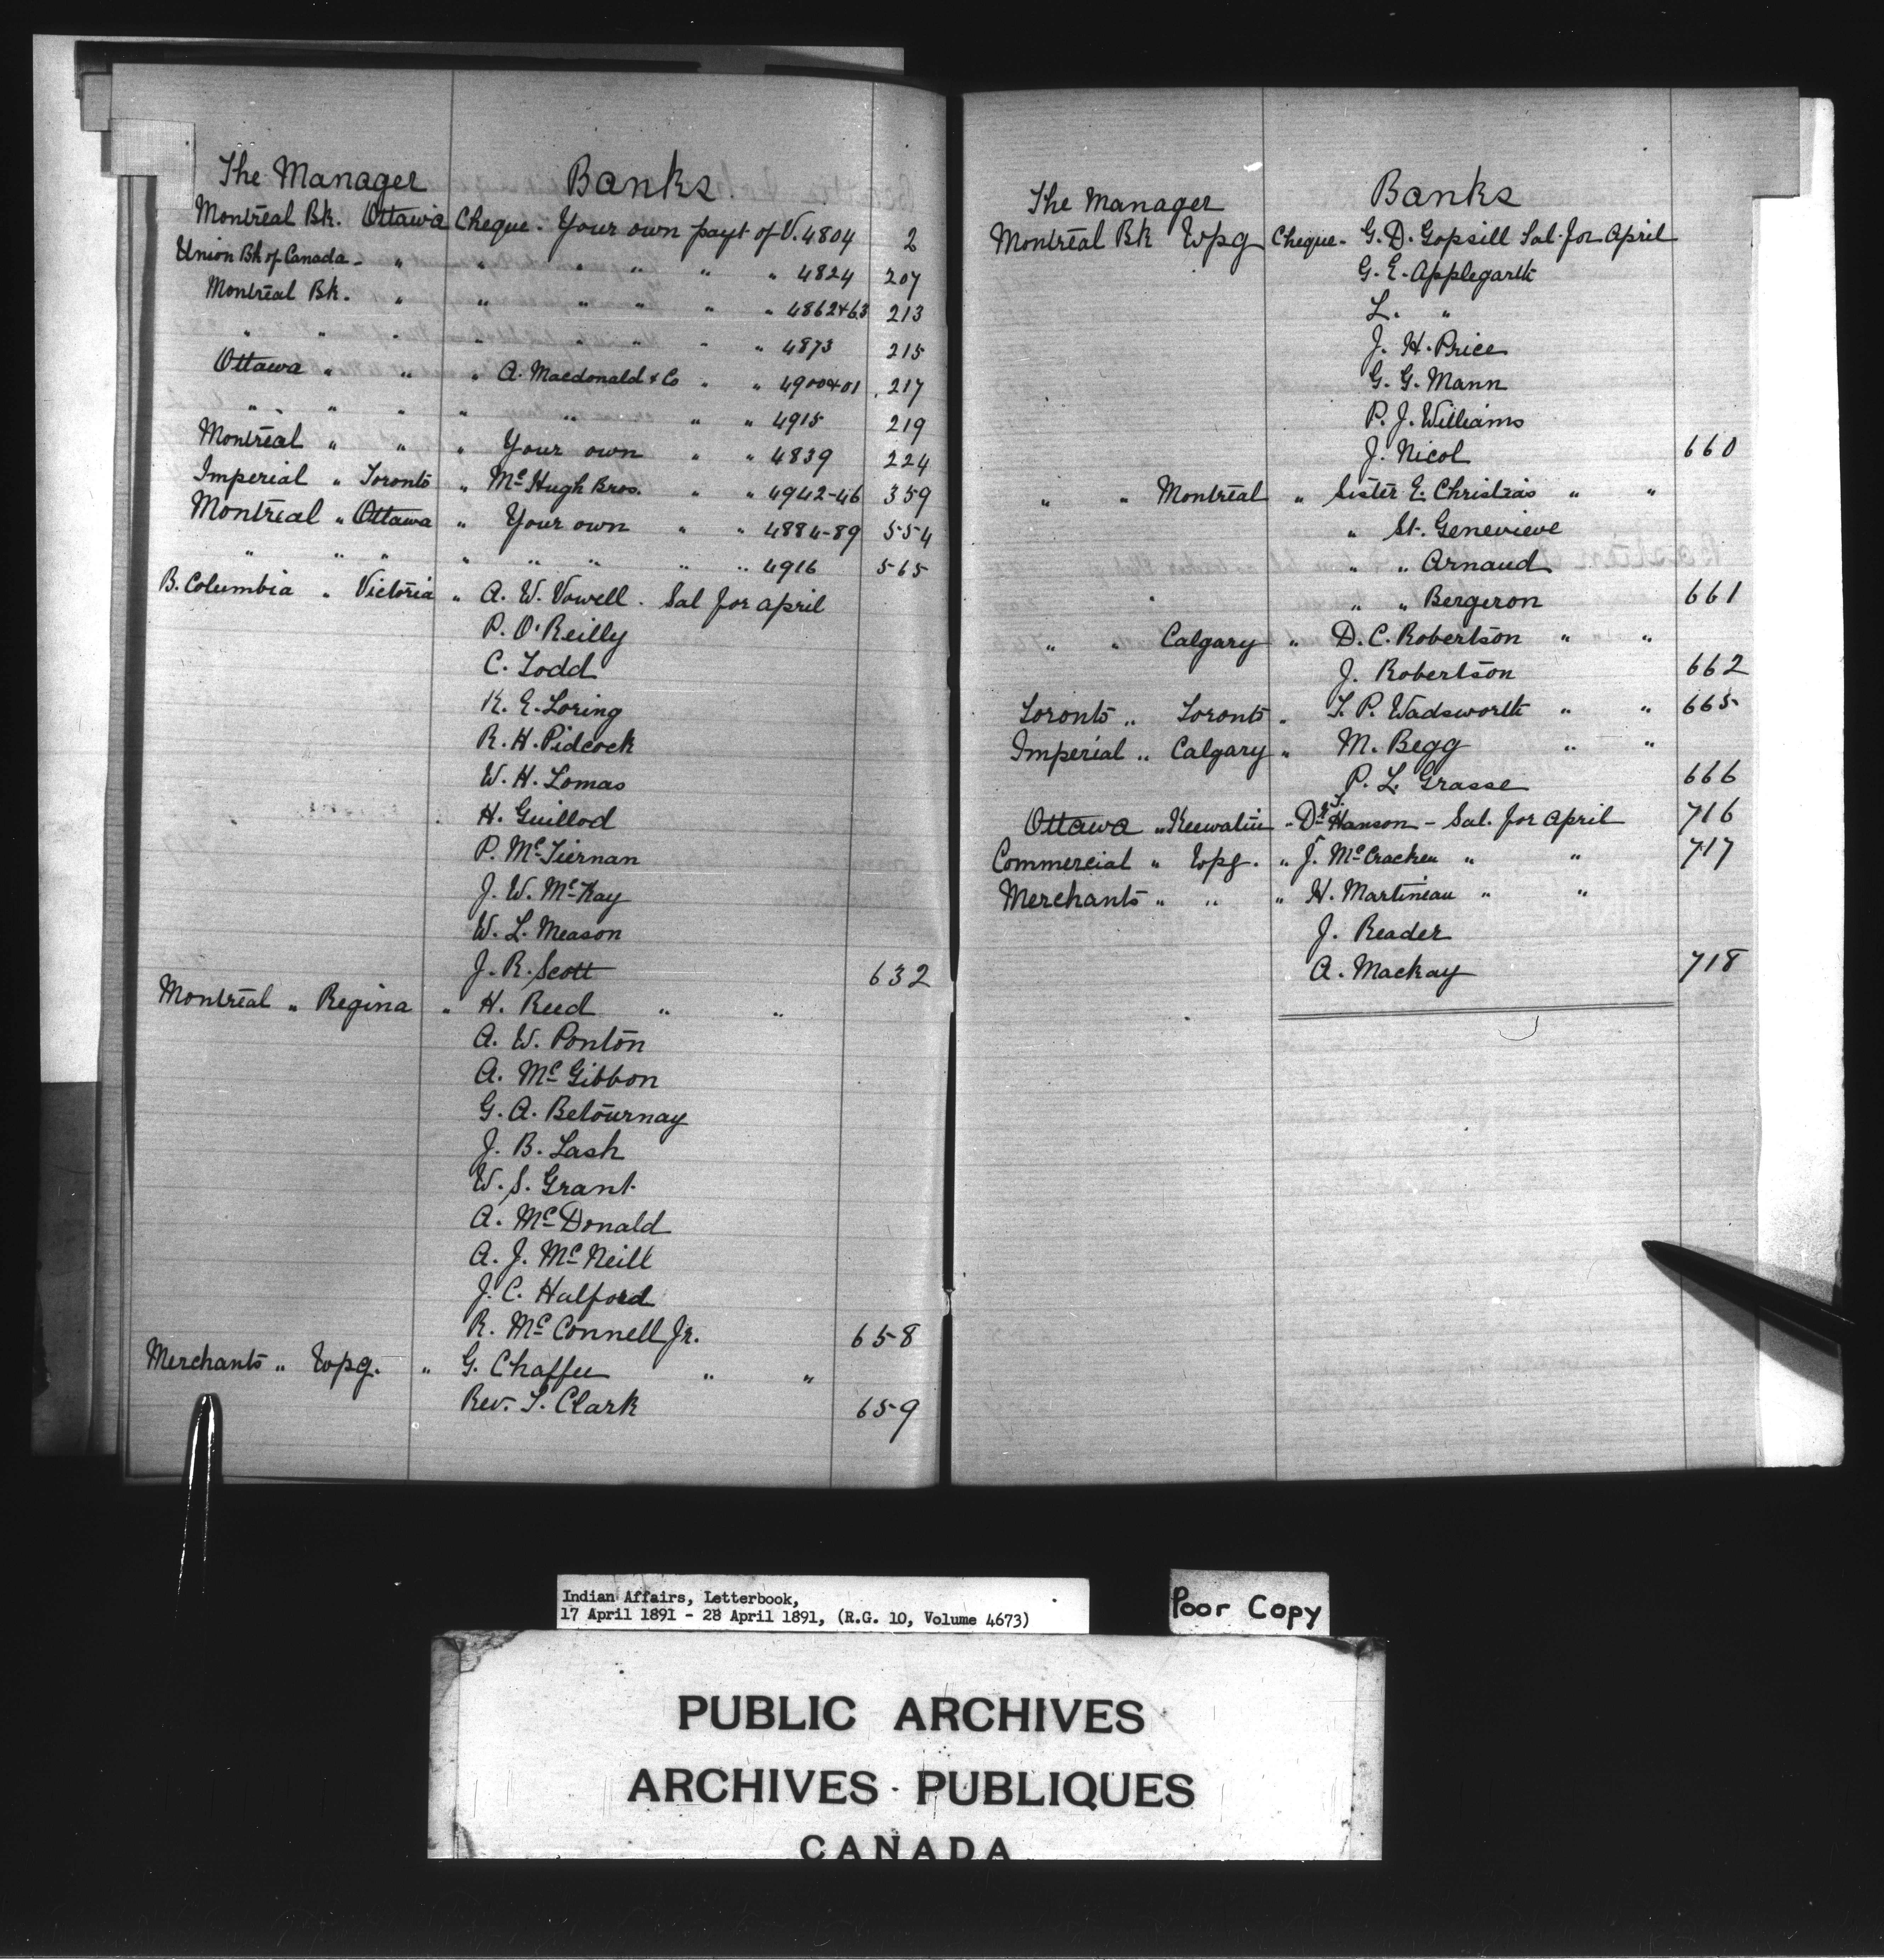 The Manager Banks.
Montreal Bk. Ottawa Cheque - Your own payt of V. 4804 2
Union Bk of Canada - " " " " " " 4824 207
Montreal Bk. " " " " " " 4862+63 213
" " " " " " " " 4873 215
Ottawa " " " A. Macdonald & Co " " 4900+01 217
" " " " " " " 4915 219
Montreal " " " Your own " " 4839 224
Imperial " Toronto " McHugh Bros. " " 4942-46 359
Montreal " Ottawa " Your own " " 4884-89 554
" " " " " " " " 4916 565
B. Columbia " Victoria " A. W. Vowell. Sal for April
P. O'Reilly
C. Todd
R. E. Loring
R. H. Pidcock
W. H. Lomas
H. Guillod
P. McTiernan
J. W. McKay
W. L. Meason
J. R. Scott 632
Montreal " Regina " H. Reed " "
A. W. Ponton
A. McGibbon
G. A. Betournay
J. B. Lash
W. S. Grant
A. McDonald
A. J. McNeill
J. C. Halford
R. McConnell Jr. 658
Merchants " Wpg. " G. Chaffee " "
Rev. T. Clark 659
The Manager Banks
Montreal Bk Wpg Cheque - G. D. Gopsill Sal. for April
G. E. Applegarth
L. "
J. H. Price
G. G. Mann
P. J. Williams
J. Nicol 660
" " Montreal " Sister E. Christias " "
" St. Genevieve
" " Arnaud
" " " Bergeron 661
" " Calgary " D. C. Robertson " "
J. Robertson 662
Toronto " Toronto " T. P. Wadsworth " " 665
Imperial " Calgary " M. Begg " "
P. L. Grasse 666
Ottawa " Keewatin - Dr. T. Hanson - Sal. for April 716
Commercial " Wpg. " J. McCracken " " 717
Merchants " " " H. Martineau " "
J. Reader
A. Mackay 718
Indian Affairs, Letterbook,
17 April 1891 - 28 April 1891, (R.G. 10, Volume 4673)
Poor Copy
PUBLIC ARCHIVES
ARCHIVES PUBLIQUES
CANADA